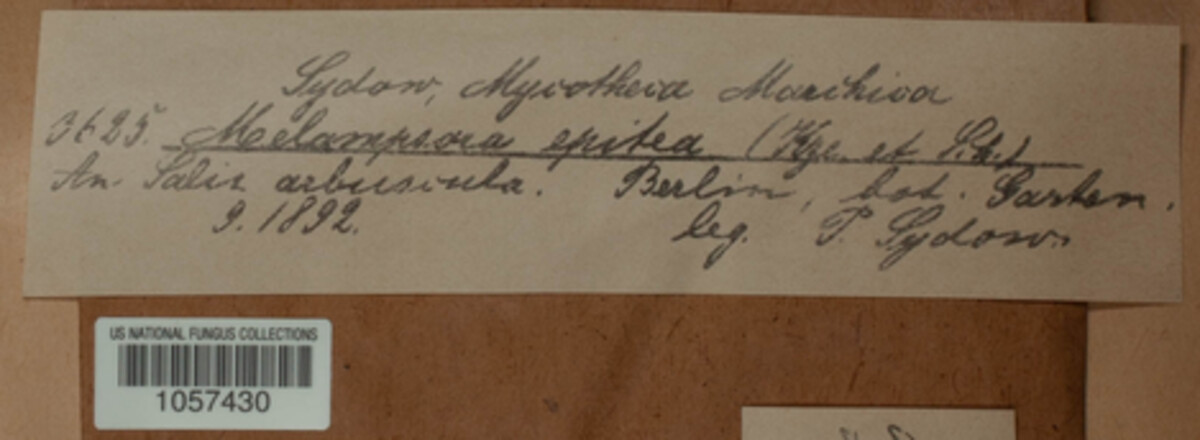 Sydow, Mycotheca Marchica
3625. Melampsora epitea (Kze. et Sch.)
An Salix arbuscula. Berlin, bot. Garten.
9. 1892. leg. P. Sydow.
US NATIONAL FUNGUS COLLECTIONS
1057430